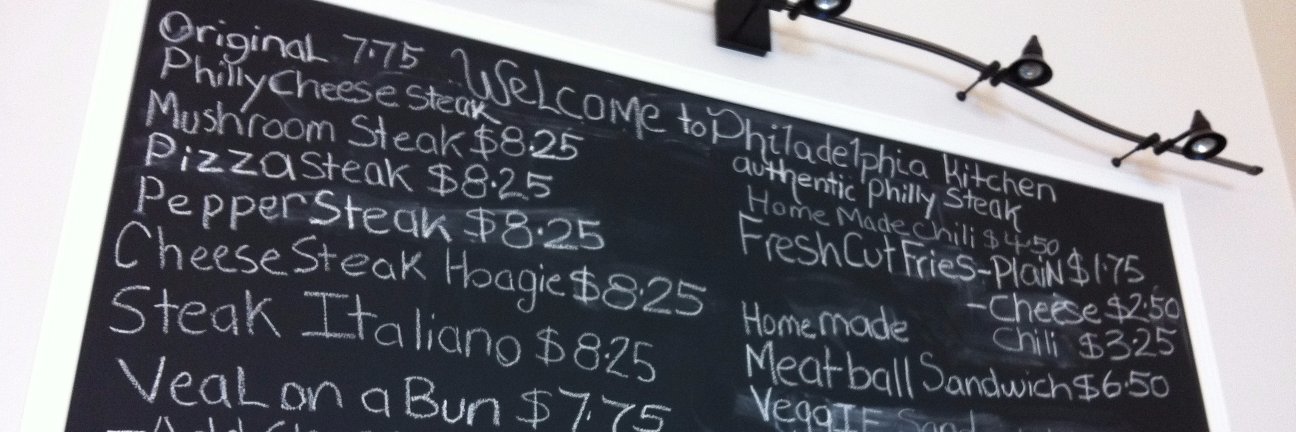 Original 7.75
Philly Cheese Steak
Mushroom Steak $8.25
Pizza Steak $8.25
Pepper Steak $8.25
Cheese Steak Hoagie $8.25
Steak Italiano $8.25
Veal on a Bun $7.75
Welcome to Philadelphia Kitchen
authentic Philly Steak
Home Made Chili $4.50
Fresh Cut Fries-Plain $1.75
-Cheese $2.50
Chili $3.25
Homemade
Meatball Sandwich $6.50
Veggie